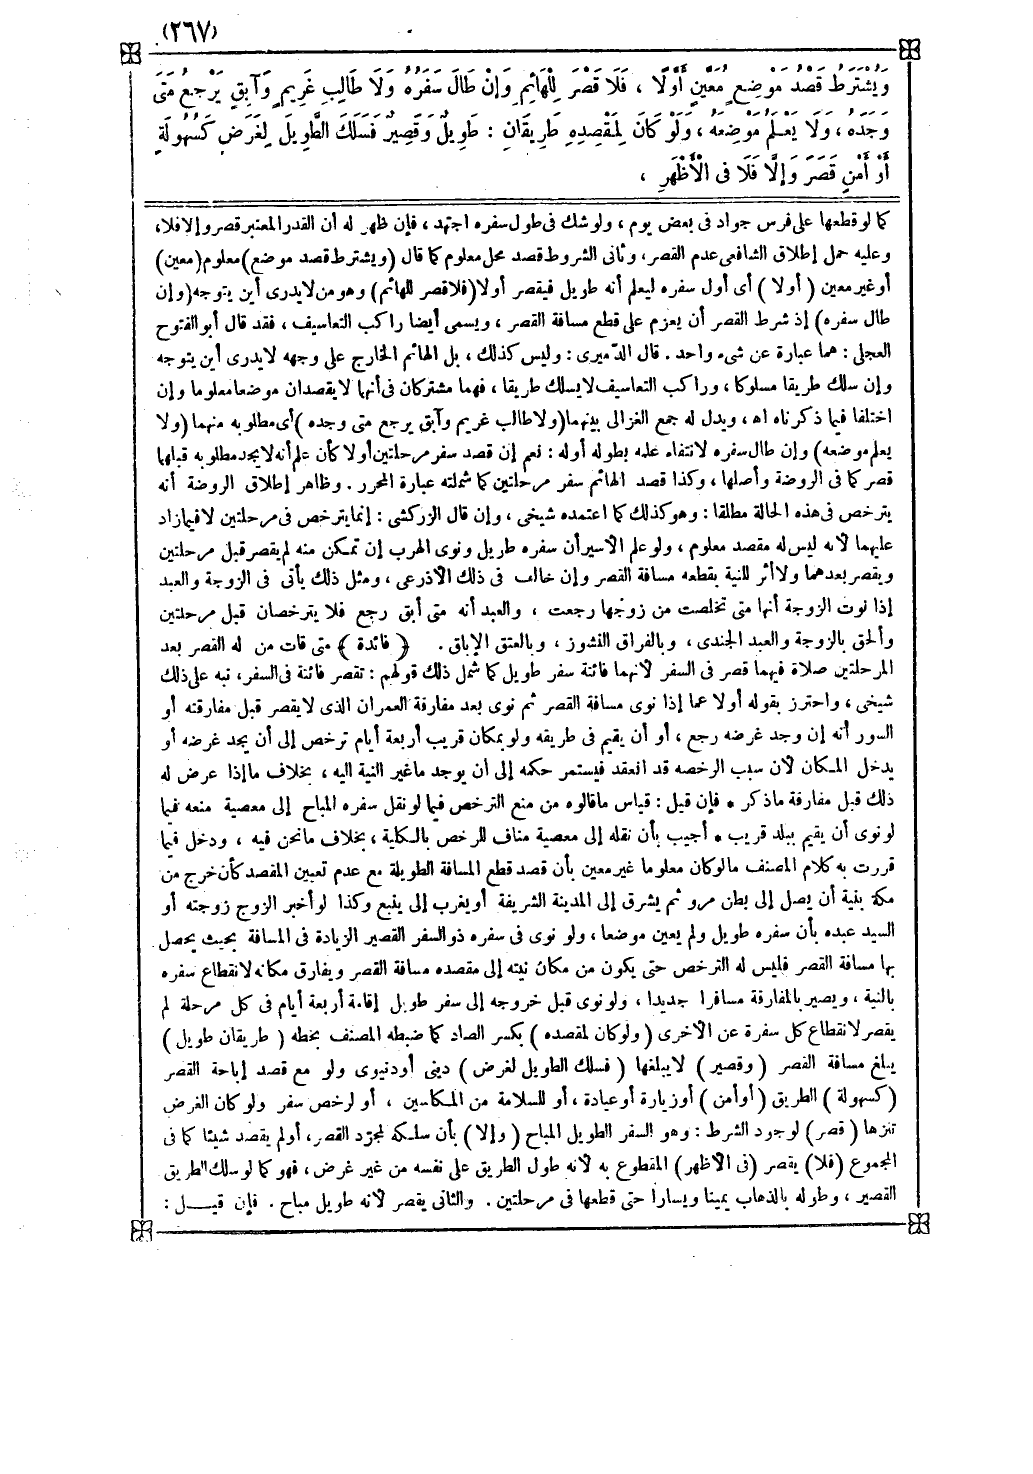 (٢٦٧)
وَيُشْتَرَطُ قَصْدُ مَوْضِعٍ مُعَيَّنٍ أَوَّلًا ، فَلَا قَصْرَ لِلْهَائِمِ وَإِنْ طَالَ سَفَرُهُ وَلَا طَالِبِ غَرِيمٍ وَآبِقٍ يَرْجِعُ مَتَى
وَجَدَهُ ، وَلَا يَعْلَمُ مَوْضِعَهُ ، وَلَوْ كَانَ لِمَقْصِدِهِ طَرِيقَانِ : طَوِيلٌ وَقَصِيرٌ فَسَلَكَ الطَّوِيلَ لِغَرَضٍ كَسُهُولَةٍ
أَوْ أَمْنٍ قَصَرَ وَإِلَّا فَلَا فِى الْأَظْهَرِ ،
كما لو قطعها على فرس جواد فى بعض يوم ، ولو شك فى طول سفره اجتهد ، فإن ظهر له أن القدر المعتبر قصر وإلا فلا ،
وعليه حمل إطلاق الشافعى عدم القصر ، وثانى الشروط قصد محل معلوم كما قال (ويشترط قصد موضع) معلوم (معين)
أو غير معين ( أولا ) أى أول سفره ليعلم أنه طويل فيقصر أولا (فلا قصر للهائم) وهو من لا يدرى أين يتوجه (وإن
طال سفره) إذ شرط القصر أن يعزم على قطع مسافة القصر ، ويسمى أيضا راكب التعاسيف ، فقد قال أبو الفتوح
العجلى : هما عبارة عن شىء واحد . قال الدّميرى : وليس كذلك ، بل الهائم الخارج على وجهه لا يدرى أين يتوجه
وإن سلك طريقا مسلوكا ، وراكب التعاسيف لا يسلك طريقا ، فهما مشتركان فى أنهما لا يقصدان موضعا معلوما وإن
اختلفا فيما ذكرناه اه ، ويدل له جمع الغزالى بينهما (ولا طالب غريم وآبق يرجع متى وجده ) أى مطلوبه منهما (ولا
يعلم موضعه) وإن طال سفره لانتفاء علمه بطوله أوله : نعم إن قصد سفر مرحلتين أولا كأن علم أنه لا يجد مطلوبه قبلهما
قصر كما فى الروضة وأصلها ، وكذا قصد الهائم سفر مرحلتين كما شملته عبارة المحرر . وظاهر إطلاق الروضة أنه
يترخص فى هذه الحالة مطلقا : وهو كذلك كما اعتمده شيخى ، وإن قال الزركشى : إنما يترخص فى مرحلتين لا فيما زاد
عليهما لأنه ليس له مقصد معلوم ، ولو علم الأسير أن سفره طويل ونوى الهرب إن تمكن منه لم يقصر قبل مرحلتين
ويقصر بعدهما ولا أثر للنية بقطعه مسافة القصر وإن خالف فى ذلك الأذرعى ، ومثل ذلك يأتى فى الزوجة والعبد
إذا نوت الزوجة أنها متى تخلصت من زوجها رجعت ، والعبد أنه متى أبق رجع فلا يترخصان قبل مرحلتين
وألحق بالزوجة والعبد الجندى ، وبالفراق النشوز ، وبالعتق الإباق . ﴿ فائدة ﴾ متى فات من له القصر بعد
المرحلتين صلاة فيهما قصر فى السفر لأنهما فائتة سفر طويل كما شمل ذلك قولهم : تقصر فائتة فى السفر ، نبه على ذلك
شيخى ، واحترز بقوله أولا عما إذا نوى مسافة القصر ثم نوى بعد مفارقة العمران الذى لا يقصر قبل مفارقته أو
السور أنه إن وجد غرضه رجع ، أو أن يقيم فى طريقه ولو بمكان قريب أربعة أيام ترخص إلى أن يجد غرضه أو
يدخل المكان لأن سبب الرخصه قد انعقد فيستمر حكمه إلى أن يوجد ماغير النية اليه ، بخلاف ما إذا عرض له
ذلك قبل مفارقة ما ذكر * فإن قيل : قياس ما قالوه من منع الترخص فيما لو نقل سفره المباح إلى معصية منعه فيما
لو نوى أن يقيم ببلد قريب * أجيب بأن نقله إلى معصية مناف للرخص بالكلية ، بخلاف ما نحن فيه ، ودخل فيما
قررت به كلام المصنف ما لو كان معلوما غير معين بأن قصد قطع المسافة الطويلة مع عدم تعيين المقصد كأن خرج من
مكة بنية أن يصل إلى بطن مرو ثم يشرق إلى المدينة الشريفة أو يغرب إلى ينبع وكذا لو أخبر الزوج زوجته أو
السيد عبده بأن سفره طويل ولم يعين موضعا ، ولو نوى فى سفره ذو السفر القصير الزيادة فى المسافة بحيث يحصل
بها مسافة القصر فليس له الترخص حتى يكون من مكان نيته إلى مقصده مسافة القصر ويفارق مكانه لانقطاع سفره
بالنية ، ويصير بالمفارقة مسافرا جديدا ، ولو نوى قبل خروجه إلى سفر طويل إقامة أربعة أيام فى كل مرحلة لم
يقصر لانقطاع كل سفرة عن الأخرى ( ولو كان لمقصده ) بكسر الصاد كما ضبطه المصنف بخطه ( طريقان طويل )
يبلغ مسافة القصر ( وقصير ) لا يبلغها ( فسلك الطويل لغرض ) دينى أو دنيوى ولو مع قصد إباحة القصر
(كسهولة ) الطريق ( أو أمن ) أو زيارة أو عيادة ، أو للسلامة من المكاسين ، أو لرخص سفر ولو كان الغرض
تنزها ( قصر) لوجود الشرط : وهو السفر الطويل المباح ( وإلا ) بأن سلكه لمجرّد القصر ، أو لم يقصد شيئا كما فى
المجموع (فلا) يقصر (فى الأظهر) المقطوع به لأنه طول الطريق على نفسه من غير غرض ، فهو كما لو سلك الطريق
القصير ، وطوله بالذهاب يمينا ويسارا حتى قطعها فى مرحلتين . والثانى يقصر لأنه طويل مباح . فإن قيـــل :